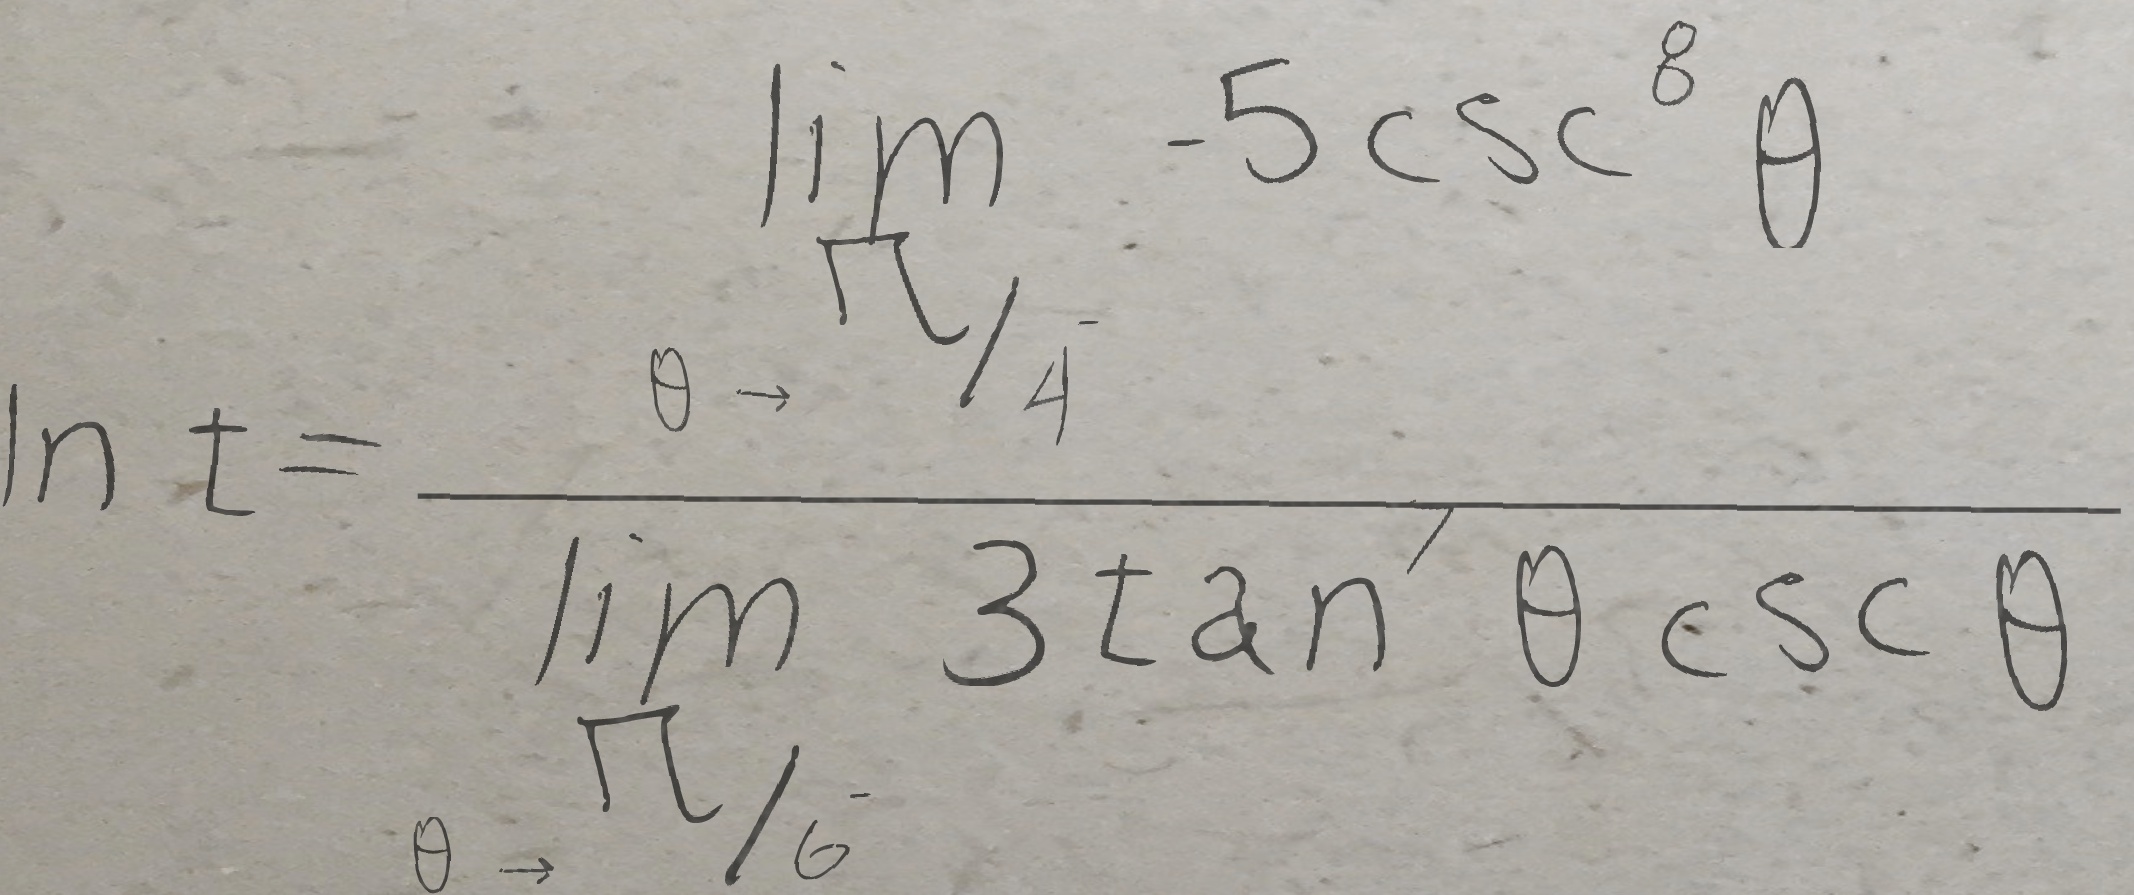 \ln t = \frac{\lim_{\theta \to \pi/4^-} -5 \csc^8 \theta}{\lim_{\theta \to \pi/6^-} 3 \tan^7 \theta \csc \theta}